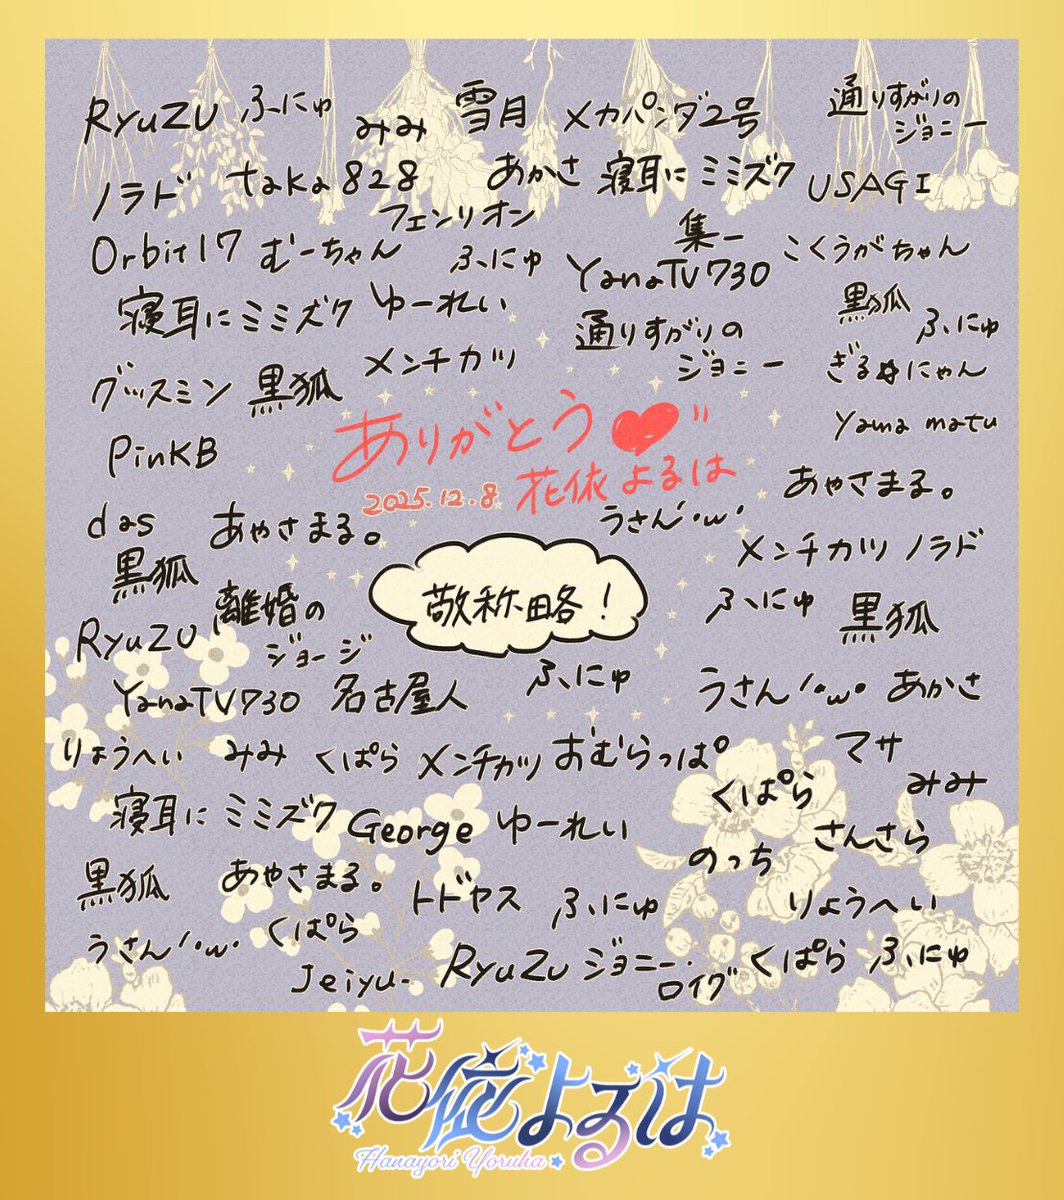 RyuZU ふにゅ みみ 雪月 メカパンダ2号 通りすがりのジョニー
ノラド taka828 あかさ 寝耳にミミズク USAGI
フェンリオン
Orbit17 むーちゃん ふにゅ YanaTV730 集一 こくうがちゃん
寝耳にミミズク ゆーれい 通りすがりのジョニー 黒狐 ふにゅ
グッスミン 黒狐 メンチカツ ぎる
にゃん
PinKB ありがとう♥" Yama matu
2025.12.8 花依よるは あやさまる。
das あやさまる。 うさん'・w・ メンチカツ ノラド
黒狐 離婚のジョージ 敬称略! ふにゅ 黒狐
RyuZU
YanaTV730 名古屋人 ふにゅ うさん'・w・ あかさ
りょうへい みみ くぱら メンチカツ おむらっぱ マサ
くぱら みみ
寝耳にミミズク George ゆーれい さんさら
のっち
黒狐 あやさまる。 トドヤス ふにゅ りょうへい
うさん'・w・ くぱら
Jeiyu- RyuZU ジョニー・ロイグ くぱら ふにゅ
花依よるは
Hanayori Yoruha